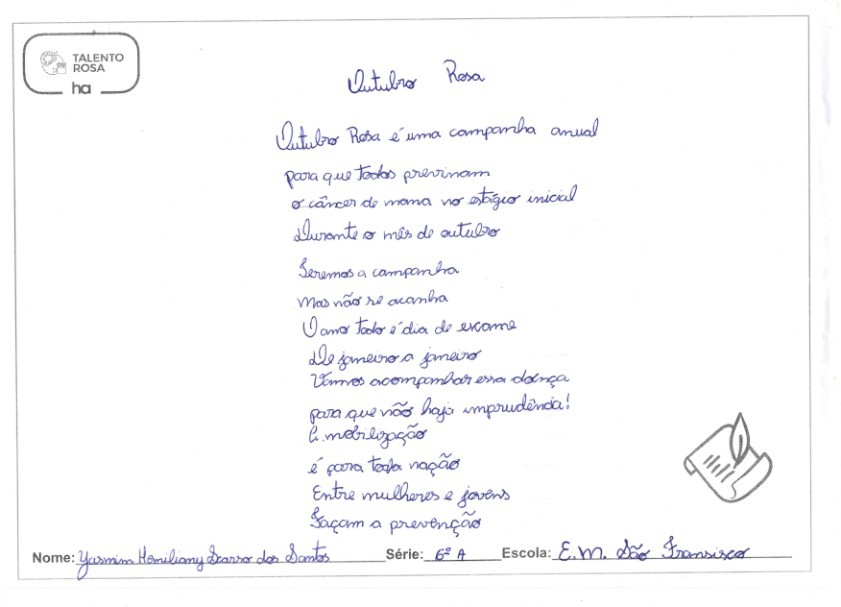 TALENTO
ROSA
ha
Outubro Rosa
Outubro Rosa é uma campanha anual
para que todos previnam
o câncer de mama no estágio inicial
Durante o mês de outubro
Teremos a campanha
Mas não se acanha
O ano todo é dia de exame
De janeiro a janeiro
Vamos acompanhar essa doença
para que não haja imprudência!
A mobilização
é para toda nação
Entre mulheres e jovens
Façam a prevenção
Nome: Yasmim Hemiliany Scarso dos Santos Série: 6º A Escola: E.M. São Fransisco